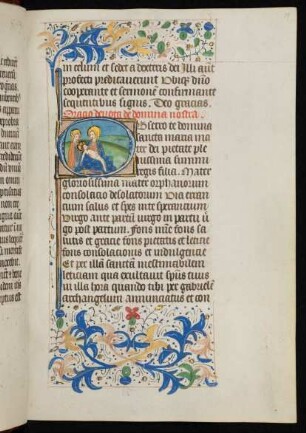 in celum et sedet a dextris dei Illi aut
profecti predicauerunt Ubiqz dño
cooperante et sermonē confirmante
sequentibus signis. Deo gracias.
Oracō deuota de domina nostra.
Bsecro te domina
sancta maria ma
ter dei pietate ple
nissima summi
regis filia. Mater
gloriosissima mater orphanorum
consolacio desolatorum Via erran
cium salus et spes in te sperancium
Uirgo ante partū uirgo in partu ū
go post partum. Fons mīe fons sa
lutis et gracie fons pietatis et leticie
fons consolacionis et indulgencie
Et per illā sanctā inestimabilem
leticiam qua exultauit spūs tuus
in illa hora quando tibi per gabrielē
archangelum annunciatus et con